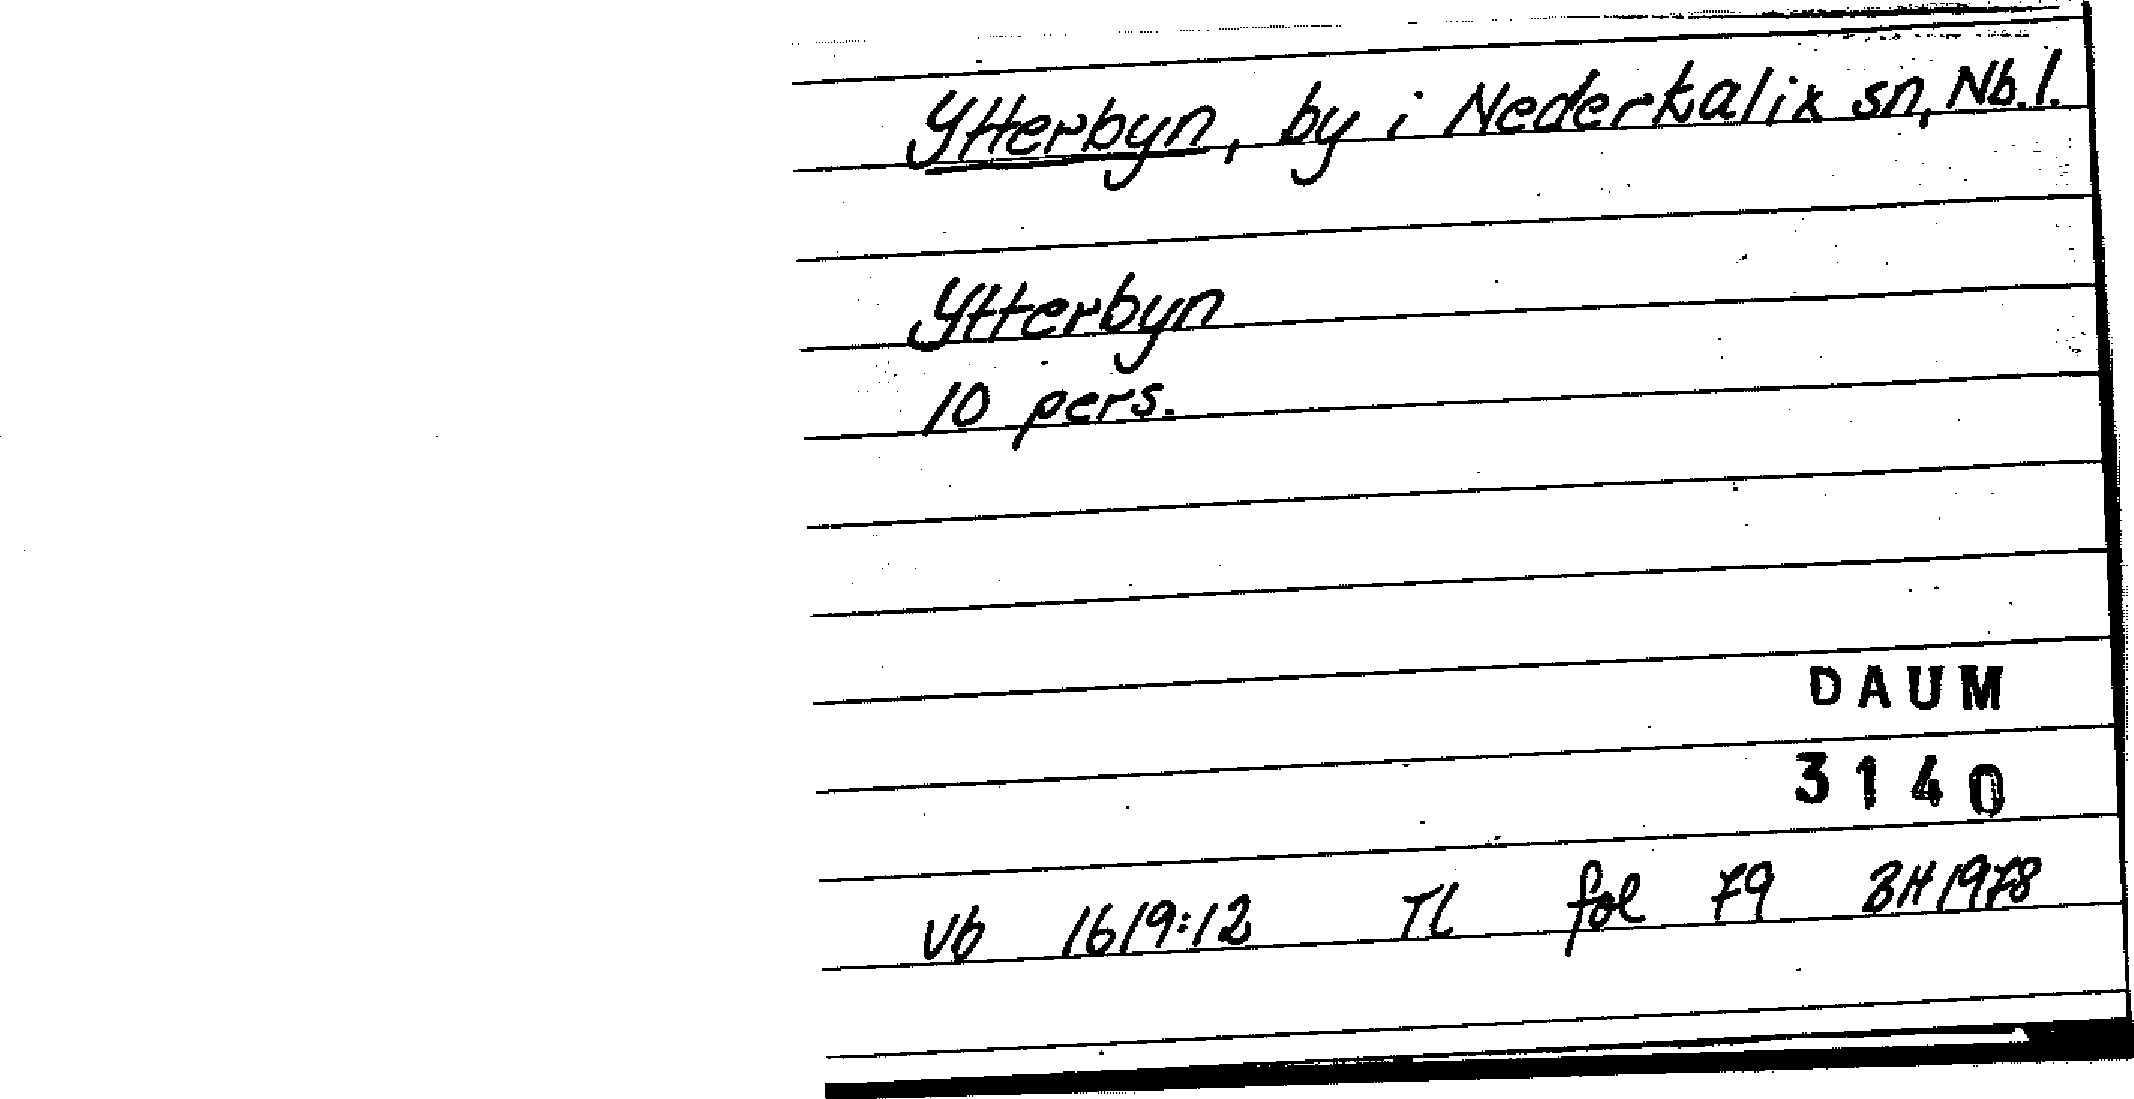 Ytterbyn, by i Nederkalix sn, Nb.l.
Ytterbyn
10 pers.
DAUM
3140
Vb 1619:12 TL fol 79 BH 1978